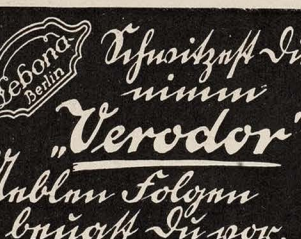 Lebona
Berlin
Schwitzest Du
nimm
„Verodor“
Ueblen Folgen
beugst Du vor.